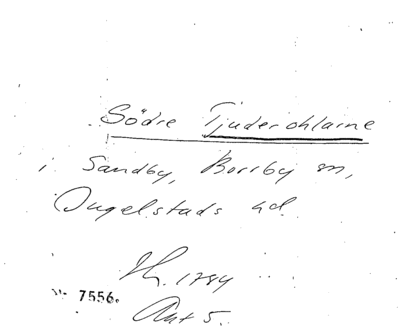 Södre Tjuderohlarne
i Sandby, Borrby sn,
Ingelstads hd.
Th. 1784
7556.
Akt 5.